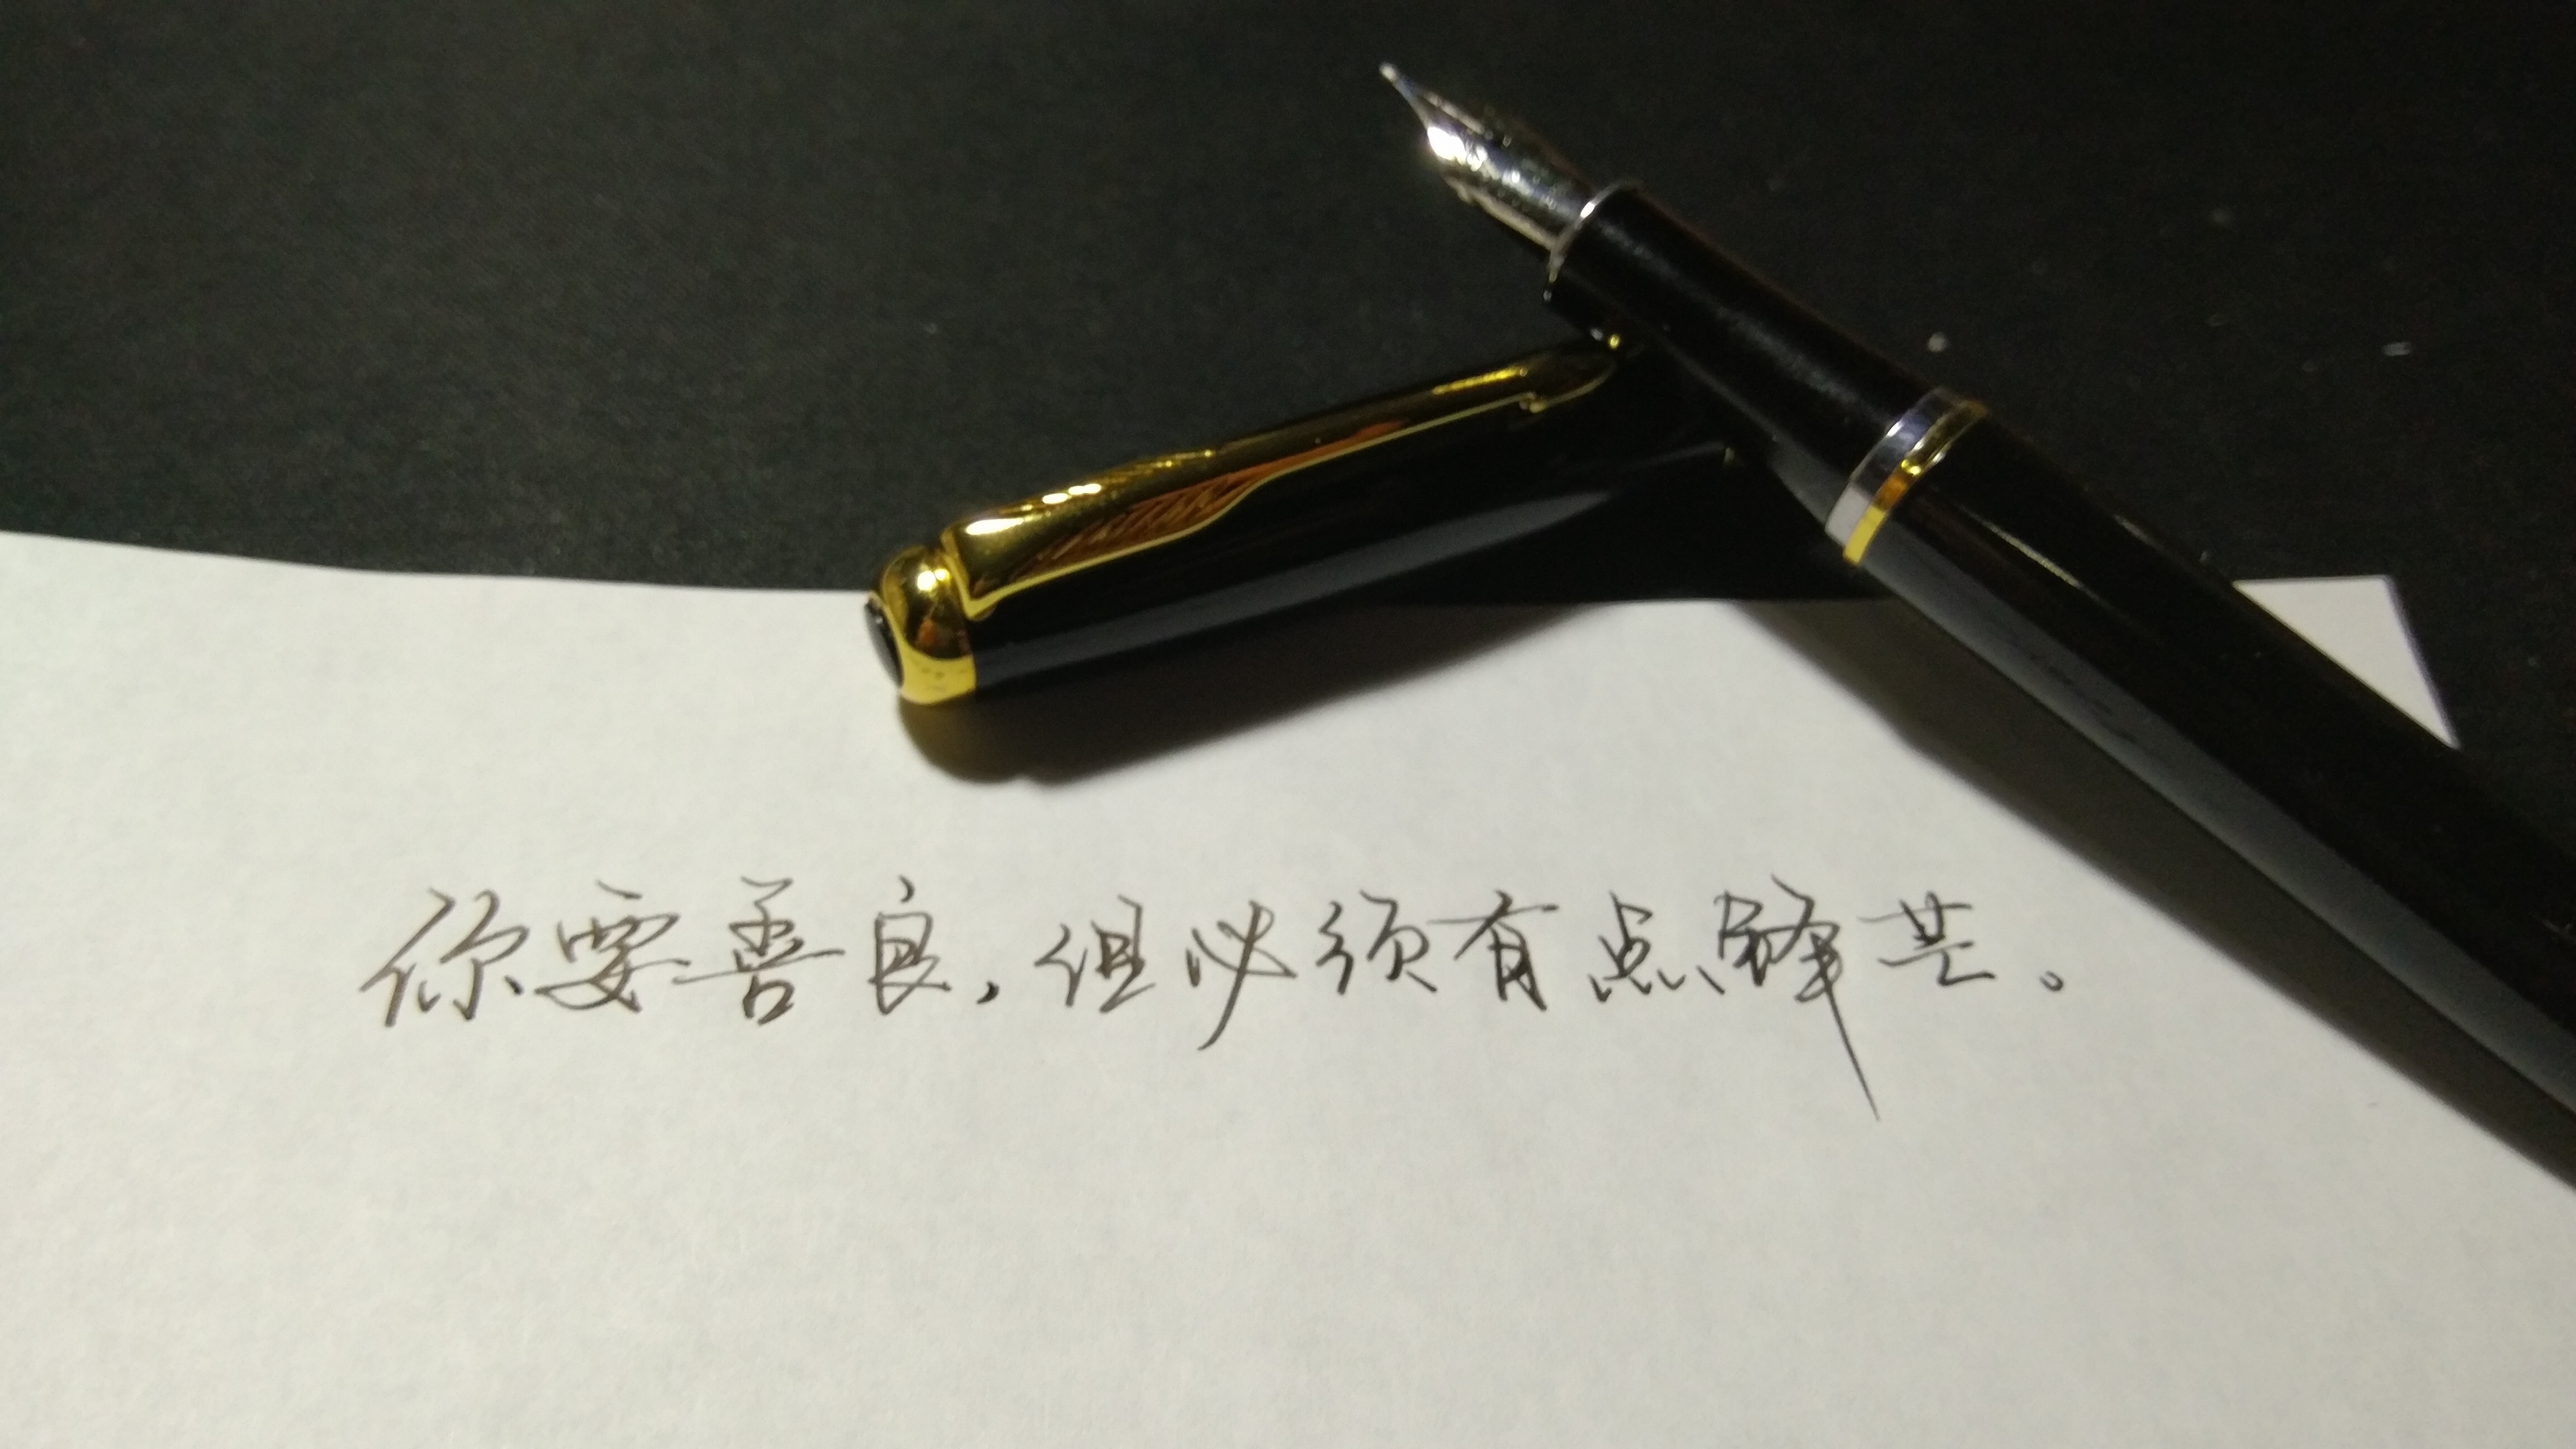 你要善良，但必须有点锋芒。